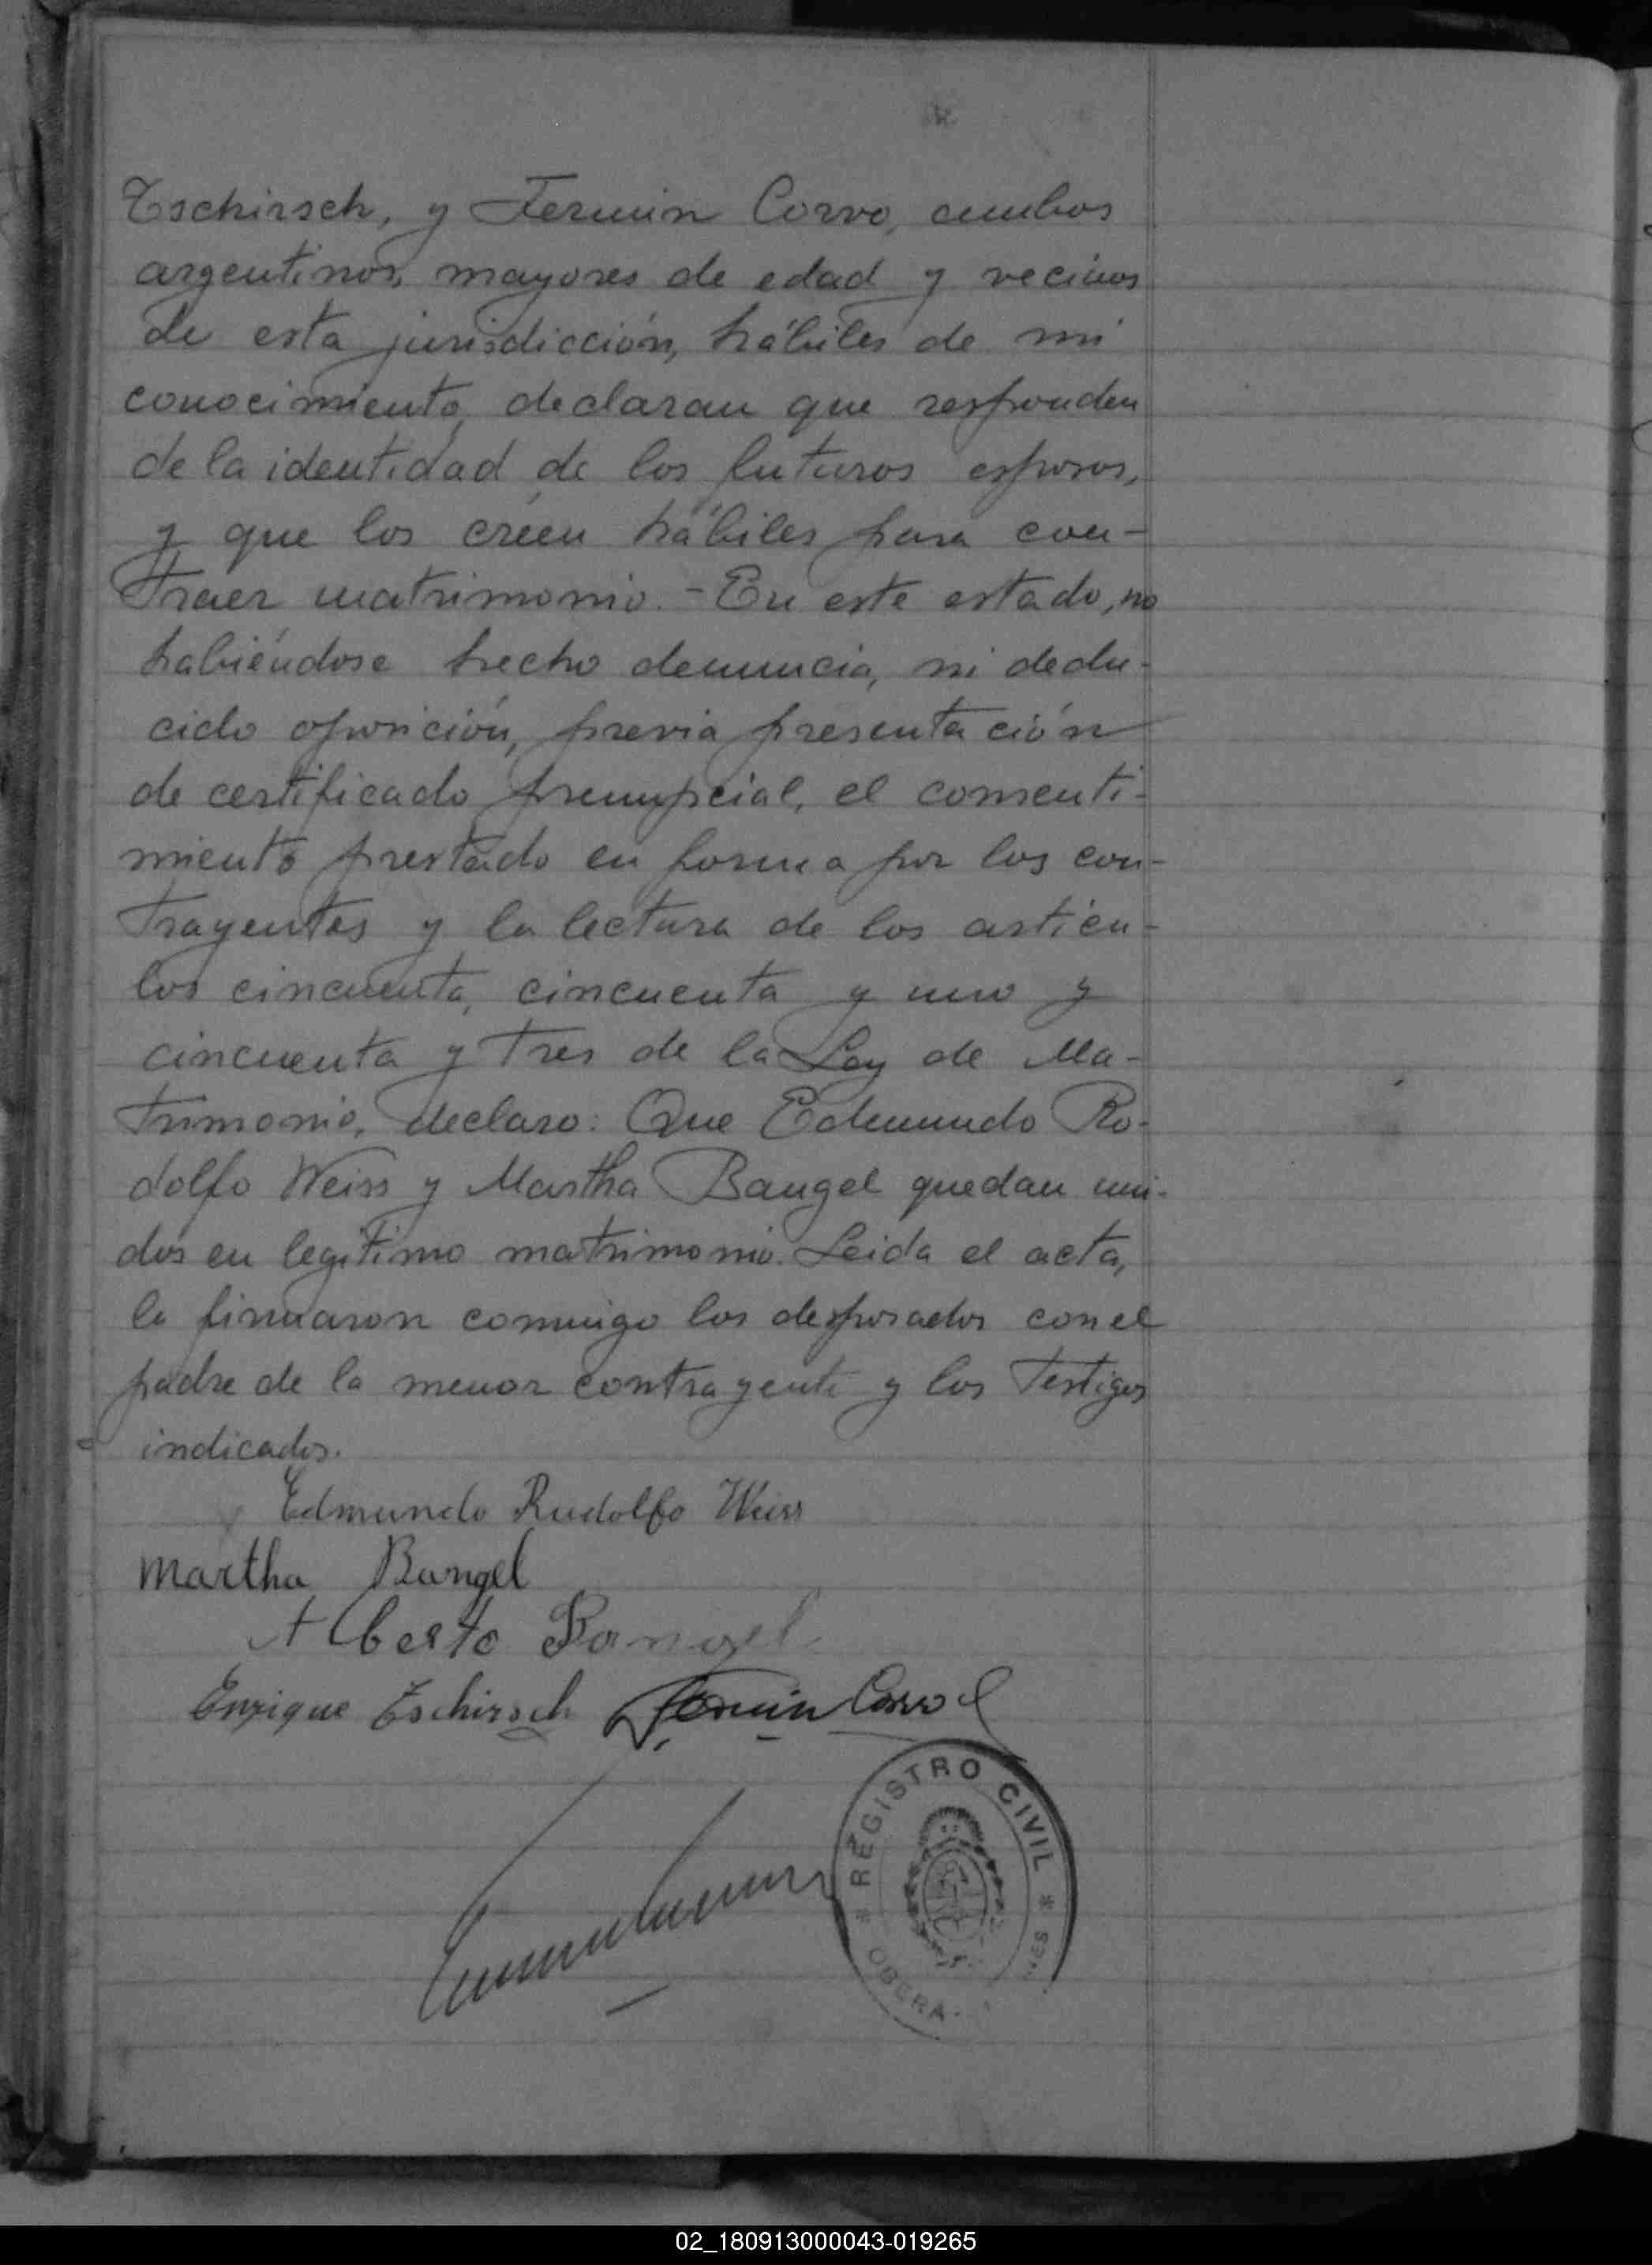 Tschirsch, y Fermin Corvo, ambos
argentinos, mayores de edad y vecinos
de esta jurisdicción, hábiles de mi
conocimiento, declaran que responden
de la identidad de los futuros esposos,
y que los créen hábiles para con-
traer matrimonio. - En este estado, no
habiéndose hecho denuncia, ni dedu-
cido oposición, previa presentación
de certificado prenupcial, el consenti-
miento prestado en forma por los con-
trayentes y la lectura de los artícu-
los cincuenta, cincuenta y uno y
cincuenta y tres de la Ley de Ma-
trimonio, declaro: Que Edmundo Ro-
dolfo Weiss y Martha Bangel quedan uni-
dos en legítimo matrimonio. Leida el acta,
la firmaron conmigo los desposados con el
padre de la menor contrayente y los testigos
indicados.
Edmundo Rudolfo Weiss
Martha Bangel
Alberto Bangel
Enrique Tschirsch Fermin Corvo
* REGISTRO CIVIL *
OBERA
02_180913000043-019265